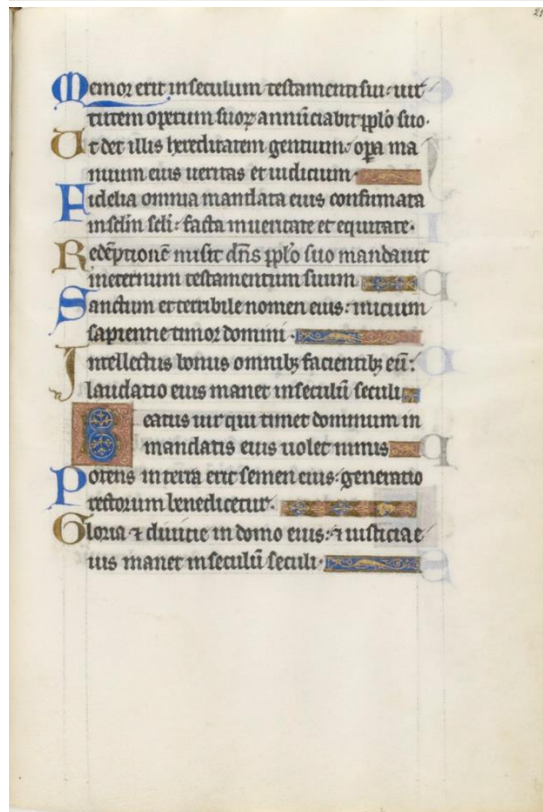 Memor erit in seculum testamenti sui: uir
tutem operum suoꝝ annūciabit pplo suo.
Ut det illis hereditatem gentium: opa ma
nuum eius ueritas et iudicium.
Fidelia omnia mandata eius confirmata
in sclm scli: facta in ueritate et equitate.
Redēptionē misit dn̄s pplo suo mandauit
in eternum testamentum suum.
Sanctum et terribile nomen eius: inicium
sapientie timor domini.
Intellectus bonus omnibꝫ facientibꝫ eū:
laudatio eius manet in seculū seculi
Beatus uir qui timet dominum in
mandatis eius uolet nimis
Potens in terra erit semen eius: generatio
rectorum benedicetur.
Gloria ⁊ diuitie in domo eius: ⁊ iusticia e
ius manet in seculū seculi.